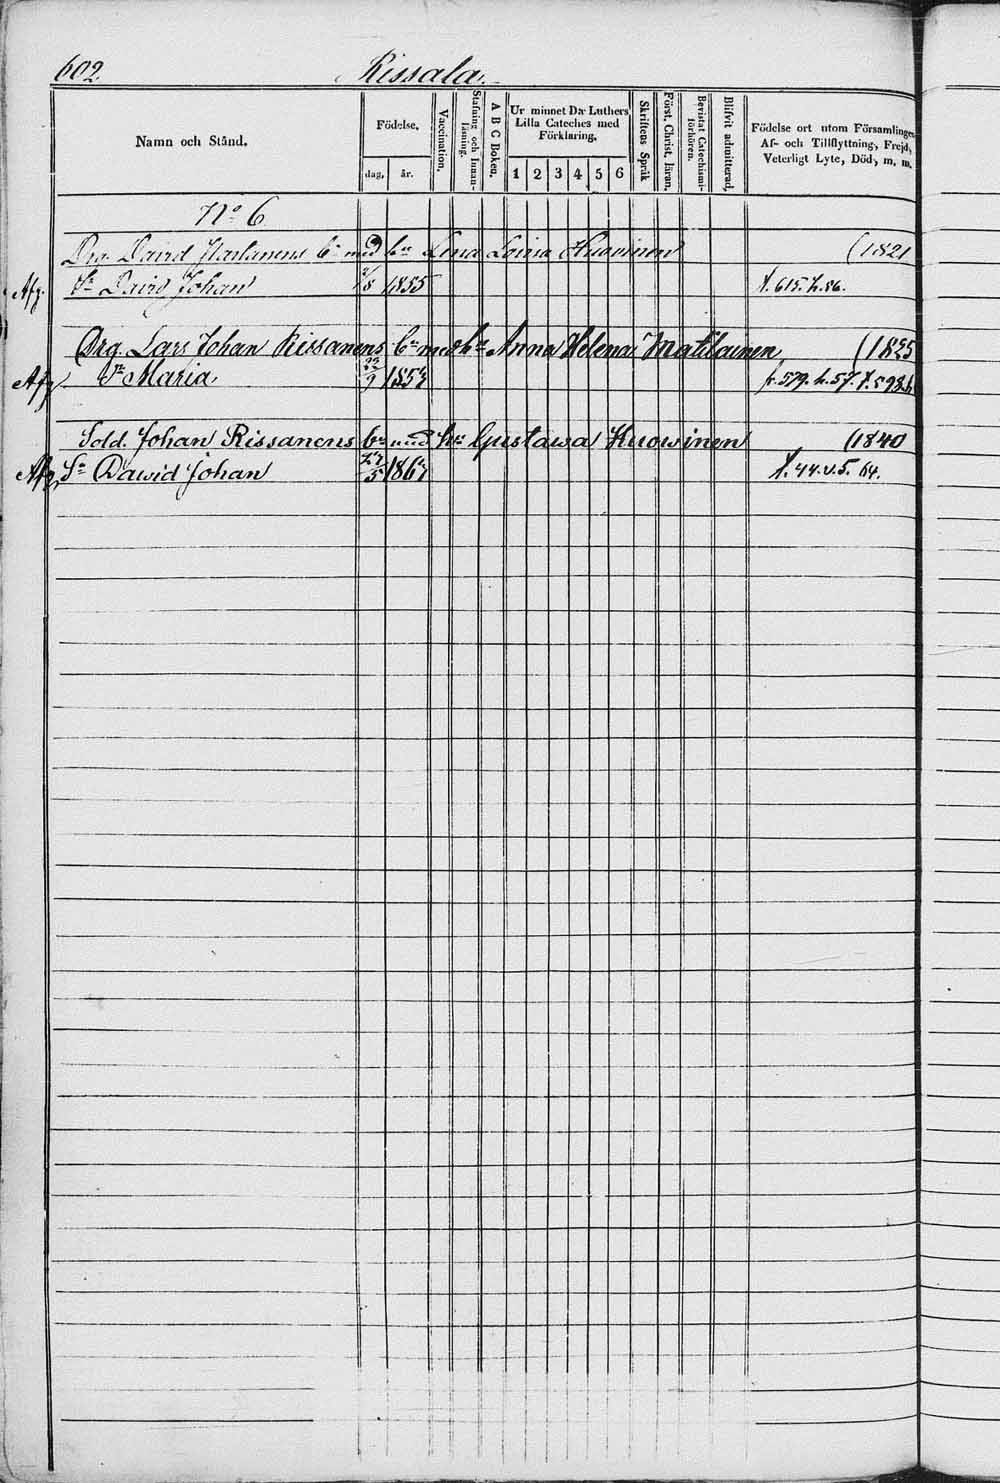 602. Rissala.
Namn och Stånd.
Födelse.
dag. år.
Vaccination.
Stafning och Innanläsning.
A B C Boken.
Ur minnet D:r Luthers
Lilla Cateches med
Förklaring.
1 2 3 4 5 6
Skriftens Språk
Först. Christ. läran.
Bevistat Catechismiförhören.
Blifvit admitterad.
Födelse ort utom Församlingen,
Af- och Tillflyttning, Frejd,
Veterligt Lyte, Död, m. m.
N:o 6
Drg. David Karlanens b:n med h:u Lena Lovisa Huovinen (1821
Afg. S:n David Johan 2/8 1855 t. 615. h. 86.
Drg. Lars Johan Rissanens b:n med h:u Anna Helena Matilainen (1825
Afg D:r Maria 22/9 1857 fr. 579. h. 57. t. 598. h
Sold. Johan Rissanens b:n med h:u Gustawa Huowinen (1840
Afg. S:n Dawid Johan 27/5 1867 t. 44. v. 5. 64.